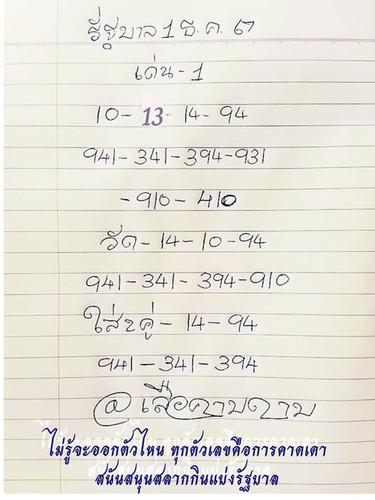 รัฐบาล 1 ธ.ค. 67
เด่น - 1
10 - 13 - 14 - 94
941 - 341 - 394 - 931
- 910 - 410
รัด - 14 - 10 - 94
941 - 341 - 394 - 910
ใส่2คู่ - 14 - 94
941 - 341 - 394
@ เสือคาบดาบ
ไม่รู้จะออกตัวไหน ทุกตัวเลขคือการคาดเดา
สนับสนุนสลากกินแบ่งรัฐบาล